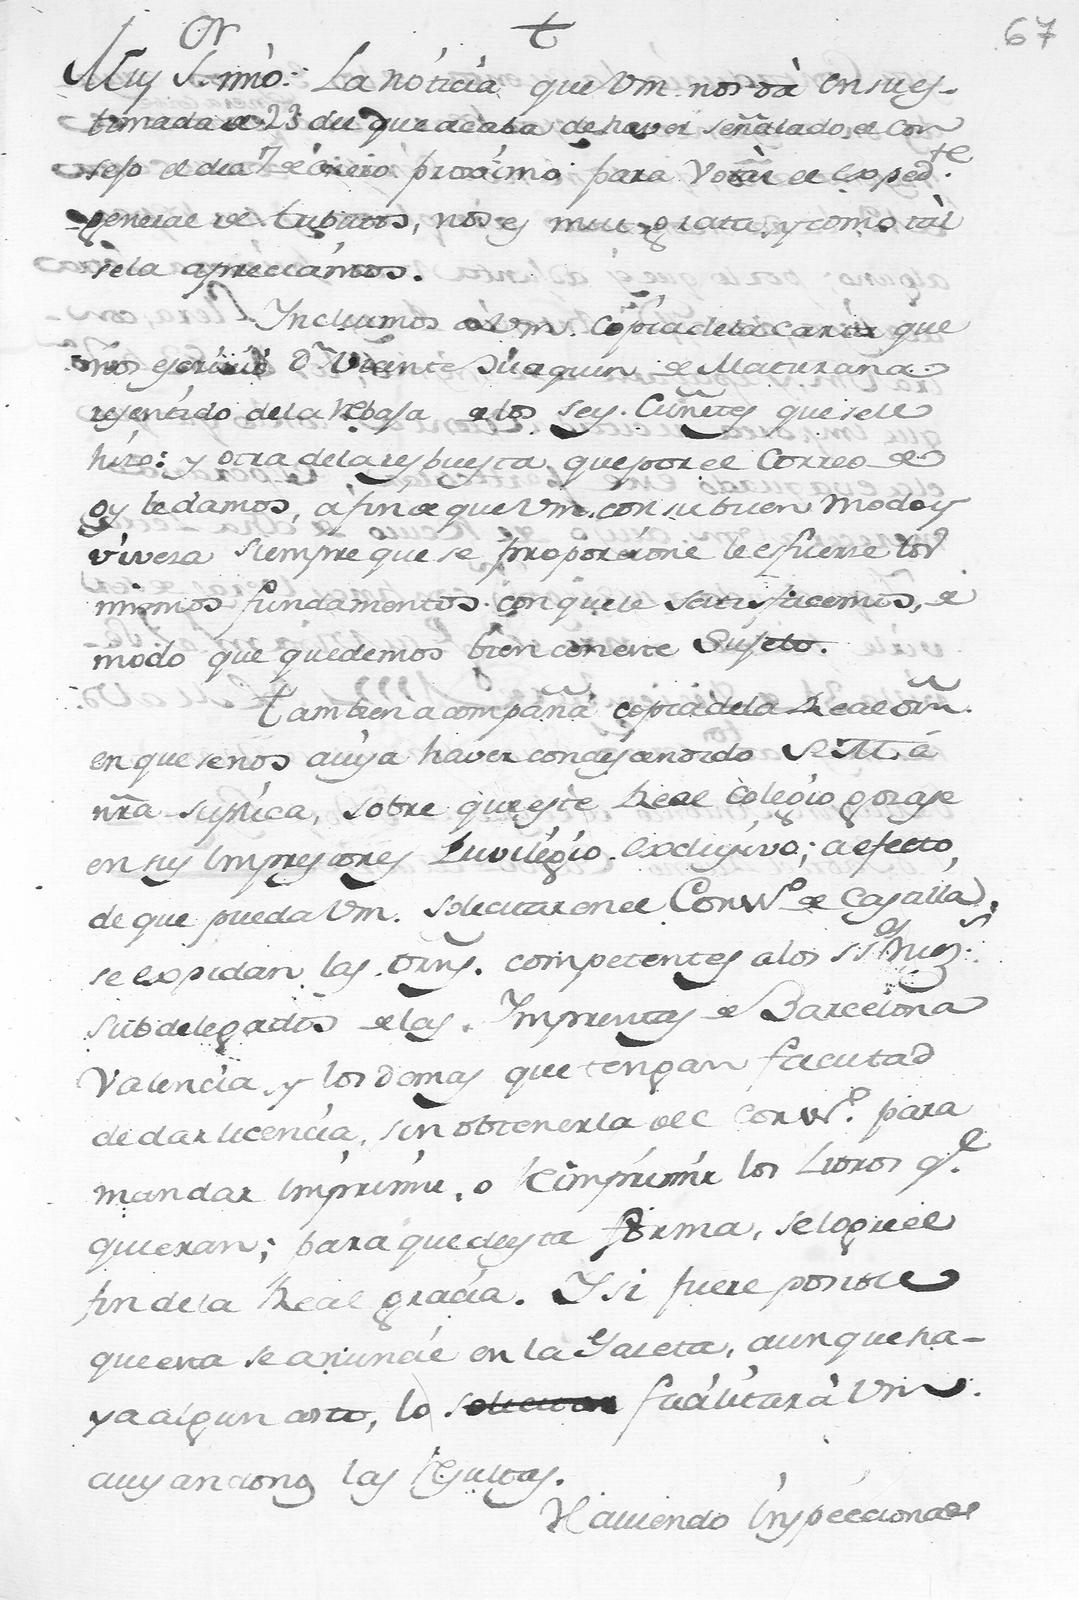 67
Muy Sr. mío: La noticia que Vm. nos dà en su es-
timada de 23 del que acaba de haver señalado el Con
sejo el dia 7 de Enero proximo para Votar el Exped.te
general de tributos, nos es mui grata, y como tàl
se la apreciàmos.
Incluimos à Vm. Còpia de la carta que
nos escriviò Dn. Vizente Juaquin de Maturana
resentido de la Rebaja de los seys. Cuñetes que se le
hizo: y otra de la respuesta que por el Correo de
oy le damos, à fin de que Vm. con su buen modo y
viveza siempre que se proporcione le esfuerze los
mismos fundamentos con que le satisfacemos, de
modo que quedemos bien con este Sujeto.
Tambien acompaña copia de la Real orn.
en que se nos avisa haver condescendido S. M. à
nra. suplica, sobre que este Real Colegio gozase
en sus Impresiones Privilègio exclusivo; a efecto
de que pueda Vm. solicitar en el Consº. de Castilla,
se expidan las orns. competentes a los SSres. Juezs.
subdelegados de las Imprentas de Barcelona
Valencia, y los demas que tengan facultad
de dar licencia, sin obtenerla del Consº. para
mandar imprimir, o Reimprimir los Libros q.e
quieran; para que de esta forma, se logre el
fin de la Real gracia. Y si fuere posible
que esta se anuncie en la Gazeta, aunque ha-
ya algun costo, lo facilitarà Vm.
avisandonos las resultas.
Haviendo inspeccionado